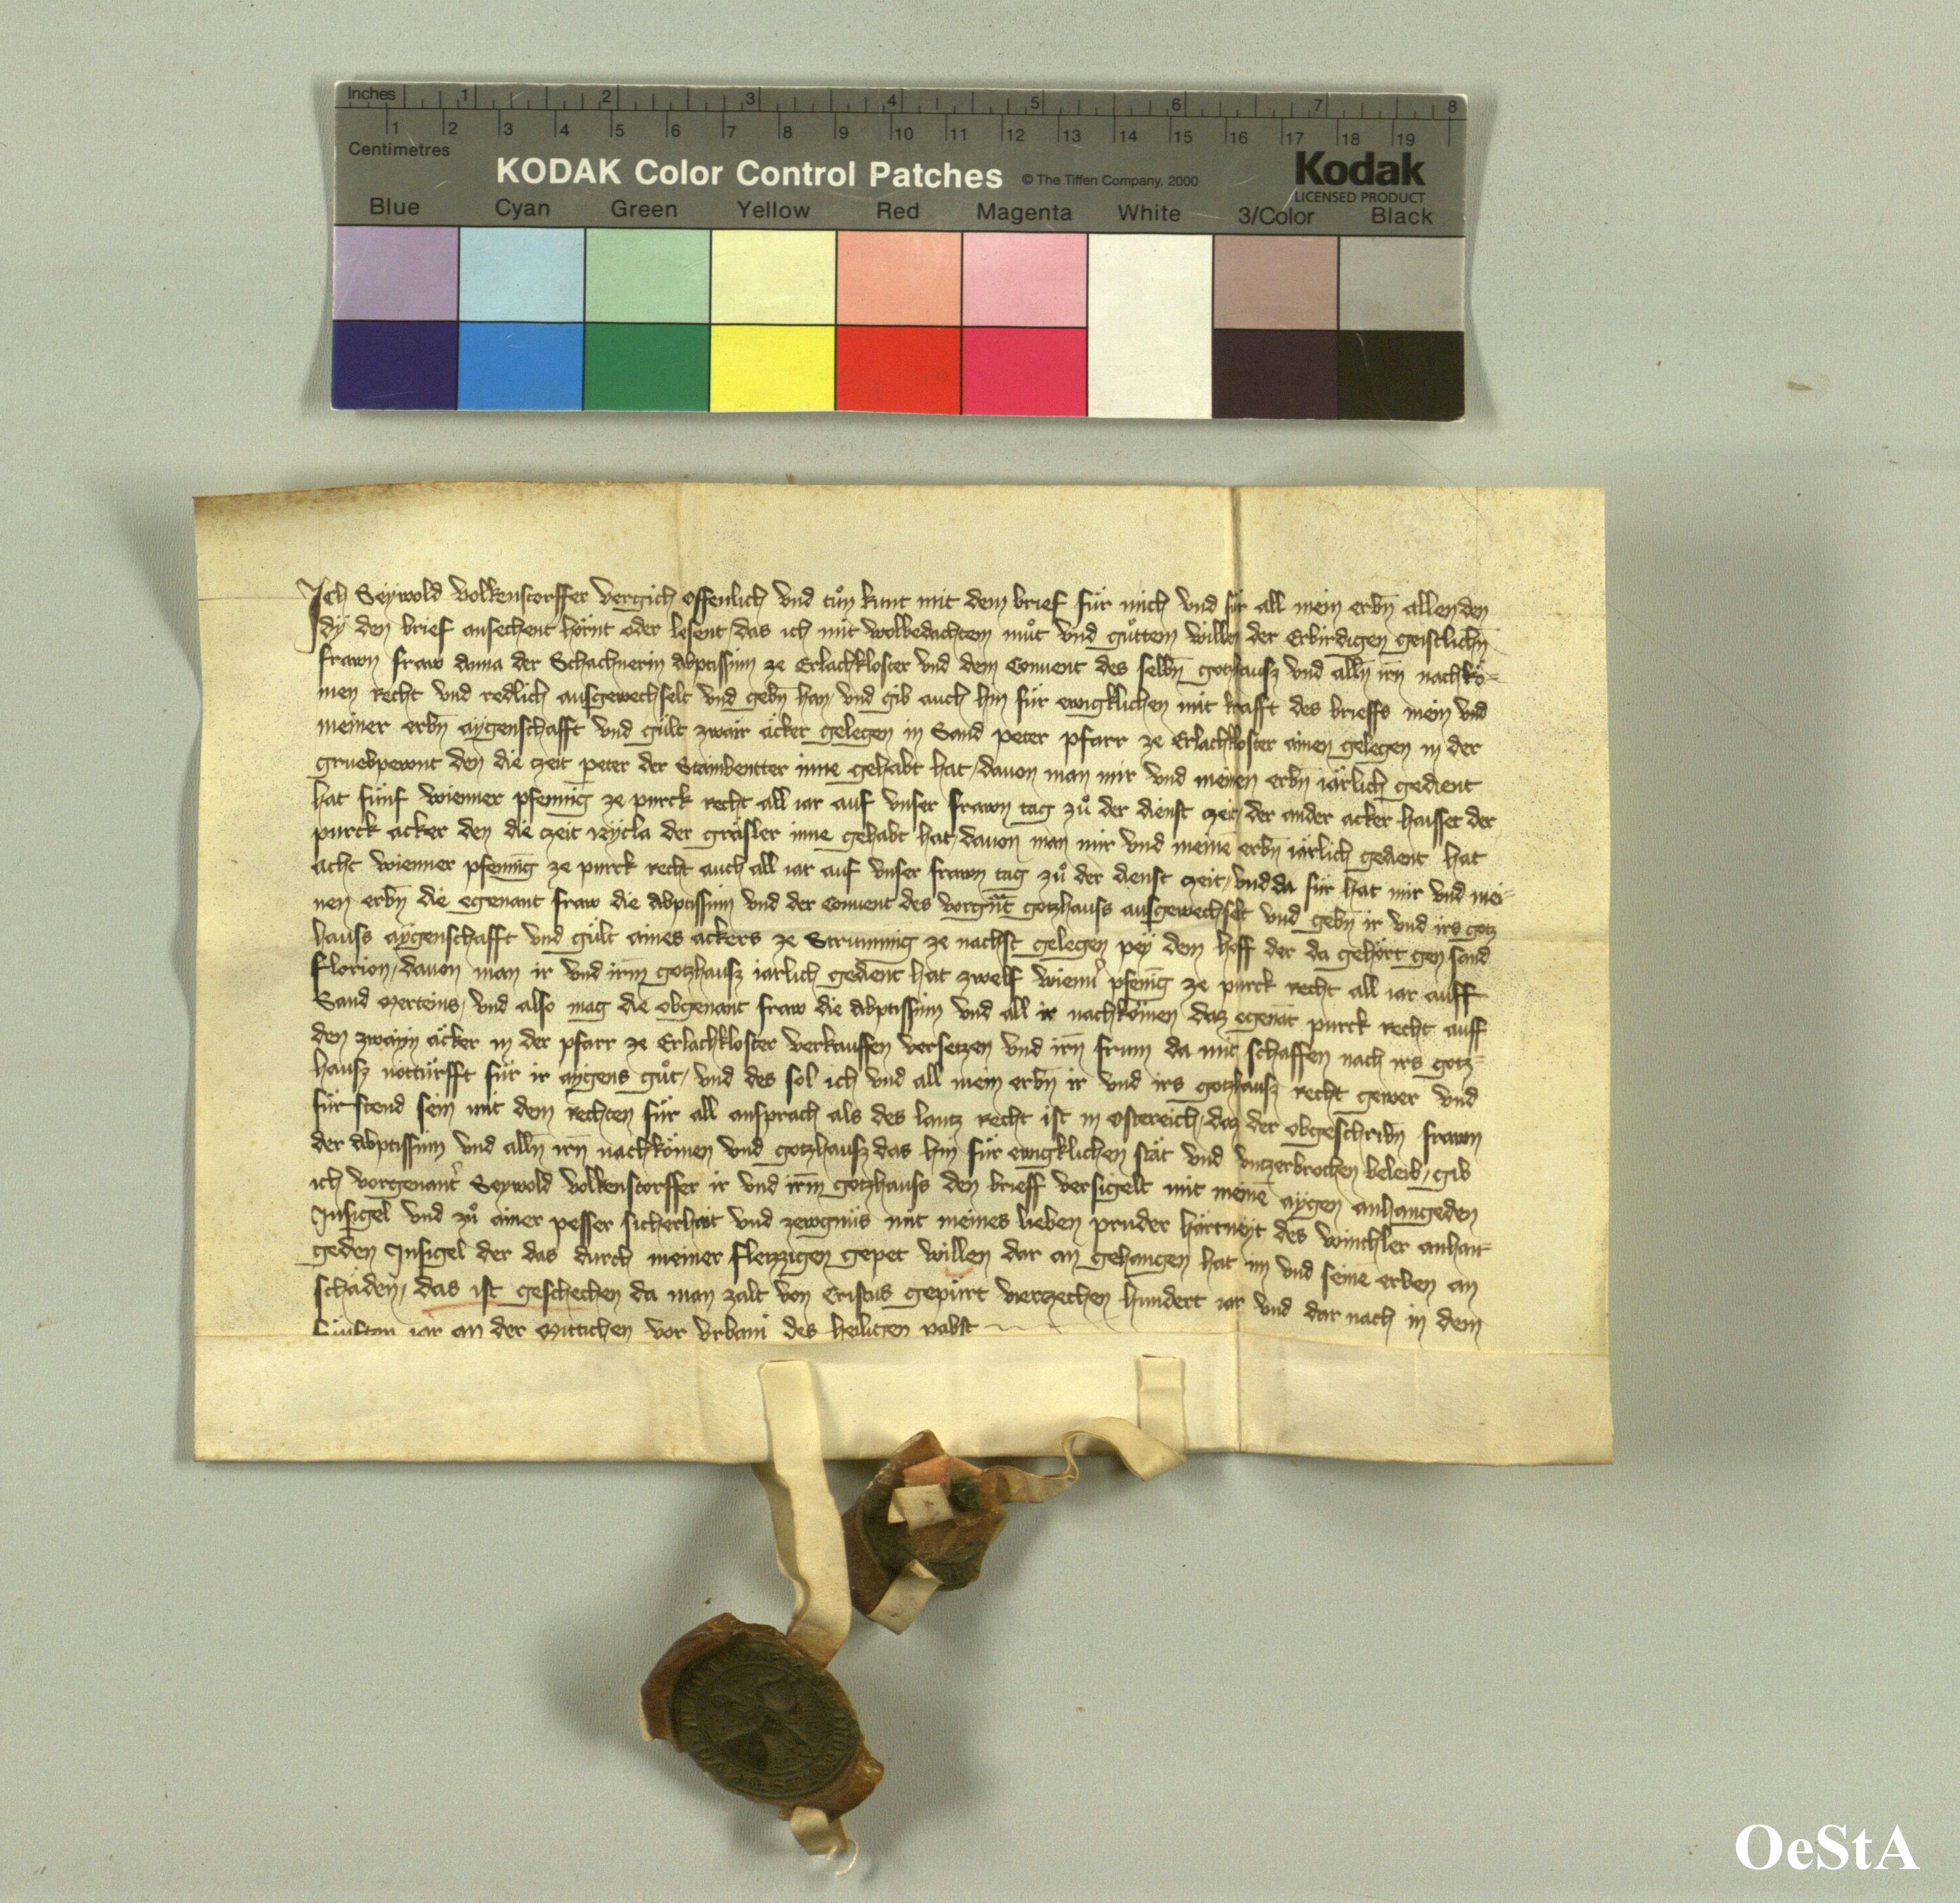 Inches 1 2 3 4 5 6 7 8
1 2 3 4 5 6 7 8 9 10 11 12 13 14 15 16 17 18 19
Centimetres
KODAK Color Control Patches © The Tiffen Company, 2000 Kodak
LICENSED PRODUCT
Blue Cyan Green Yellow Red Magenta White 3/Color Black
Ich Seywold volkenstorffer vergich offenlich vnd tůn kunt mit dem brief für mich vnd für all mein erbn̄ allen den
dy den brief ansechent hörnt oder lesent / das ich mit wolbedachtem můt vnd gůttem willen der Erbirdigen geistlichn̄
frawn fraw Anna der Schachnerin Abptissinn ze Erlachkloster vnd dem Conuent des selbn̄ gotzhausz vnd alln̄ irn̄ nachkö-
men recht vnd redlich ausgewechselt vnd gebn̄ han / vnd gib auch hin für ewigklichen mit krafft des brieffs mein vnd
meiner erbn̄ aygenschafft vnd gült zwair äker gelegen in Sand peter pfarr ze Erlachkloster ainen gelegen in der
gruebpewnt den die czeit peter der inne gehabt hat / dauon man mir vnd meinen erbn̄ iärlich gedient
hat fünf wienner pfenning ze purck recht all iar auf vnser frawn tag zů der dienst czeit / der ander acker haisset der
purck acker den die czeit der gräsler inne gehabt hat / dauon man mir vnd meinē erbn̄ iärlich gedient hat
acht wienner pfennīg ze purck recht auch all iar auf vnser frawn tag zů der dienst czeit / vnd da für hat mir vnd mei-
nen erbn̄ die egenant fraw die Abptissinn vnd der Conuent des vorgn̄t gotzhauss ausgewechselt vnd gebn̄ ir vnd irs gotz
hauss aygenschafft vnd gült aines ackers ze Strunnig ze nachst gelegen pey dem hoff der da gehört gen sand
florion / dauon man ir vnd irm̄ gotzhausz iarlich gedient hat zwelf wienn̄ pfenīg ze purck recht all iar auff
Sand Merteins / vnd also mag die obgenant fraw die Abptissinn vnd all ir nachkömen daz egenāt purck recht auff
den zwayn äcker in der pfarr ze Erlachkloster verkauffen versetzen vnd irn̄ frum da mit schaffen nach irs gotz-
hausz nottürfft für ir aygens gůt / vnd des sol ich vnd all mein erbn̄ ir vnd irs gotzhausz recht gewer vnd
für stend sein mit dem rechten für all ansprach als des lantz recht ist in Ostereich / daz der obgeschribn̄ frawn
der Abptissinn vnd alln̄ irn̄ nachkömen vnd gotzhausz das hin für ewigklichen stät vnd vnczerbrochen beleib / gib
ich vorgenant̄ Seywold volkenstorffer ir vnd irm̄ gotzhauss den brieff versigelt mit meinē aygen anhangeden
Insigel vnd zů ainer pesser sicherhait vnd zewgnüs mit meines lieben pruder härtneyt des winchler anhan-
geden Insigel der das durch meiner fleyzzigen gepet willen dar an gehangen hat im vnd seinē erben an
schäden / das ist geschechen da man zalt von Cristus gepürt vierzechen hundert iar vnd dar nach in dem
iar an der Mittichen vor Vrbani des heiligen pabst
OeStA